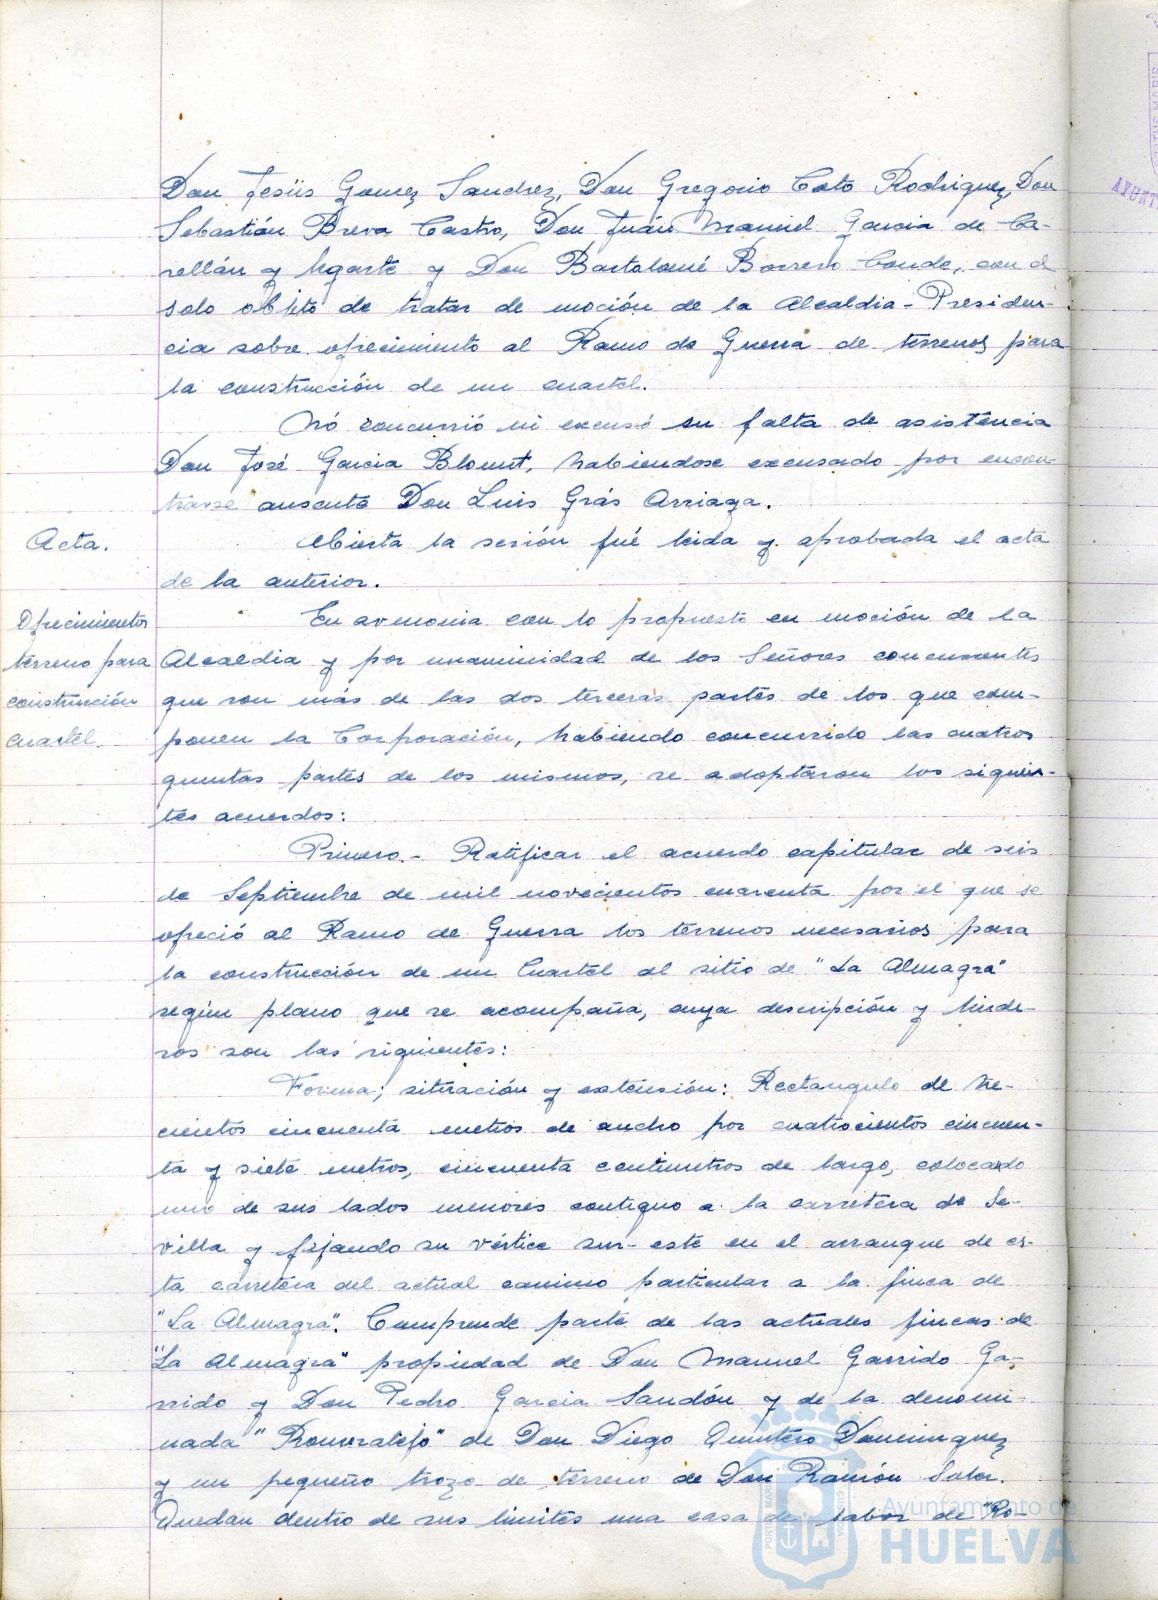 Don Jesús Gomez Sanchez, Don Gregorio Coto Rodriguez, Don
Sebastián Breva Castro, Don Juán Manuel Garcia de Ca-
rellán y Ugarte y Don Bartolomé Borrero Conde, con el
solo objeto de tratar de moción de la Alcaldia-Presiden-
cia sobre ofrecimiento al Ramo de Guerra de terrenos para
la construcción de un cuartel.
Nó concurrió ni excusó su falta de asistencia
Don José Garcia Blount, habiendose excusado por encon-
trarse ausente Don Luis Grás Arriaga.
Acta.
Abierta la sesión fué leida y aprobada el acta
de la anterior.
Ofrecimientos
terreno para
construcción
cuartel.
En armonia con lo propuesto en moción de la
Alcaldia y por unaminidad de los Señores concurrentes
que son más de las dos terceras partes de los que com-
ponen la Corporación, habiendo concurrido las cuatros
quintas partes de los mismos, se adoptaron los siguien-
tes acuerdos:
Primero.- Ratificar el acuerdo capitular de seis
de Septiembre de mil novecientos cuarenta por el que se
ofreció al Ramo de Guerra los terrenos necesarios para
la construcción de un Cuartel al sitio de "La Almagra"
según plano que se acompaña, cuya descripción y linde-
ros son las siguientes:
Forma; situación y extensión: Rectangulo de tre-
cientos cincuenta metros de ancho por cuatrocientos cincuen-
ta y siete metros, cincuenta centimetros de largo, colocado
uno de sus lados menores contiguo a la carretera de Se-
villa y fijando su vértice sur-este en el arranque de es-
ta carretera del actual camino particular a la finca de
"La Almagra". Comprende parte de las actuales fincas de
"La Almagra" propiedad de Don Manuel Garrido Ga-
rrido y Don Pedro Garcia Sandón y de la denomi-
nada "Romeralejo" de Don Diego Quintero Dominguez
y un pequeño trozo de terreno de Don Ramón Soler.
Quedan dentro de sus limites una casa de labor de Ro-
Ayuntamiento de
HUELVA